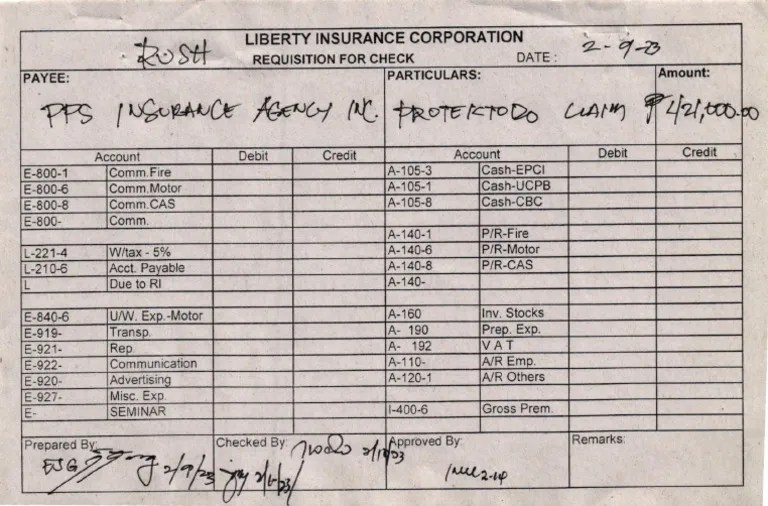 LIBERTY INSURANCE CORPORATION
RUSH REQUISITION FOR CHECK DATE : 2-9-23
PAYEE: PARTICULARS: Amount:
PPS INSURANCE AGENCY INC. PROTEKTODO CLAIM ₱ 421,000.00
Account Debit Credit Account Debit Credit
E-800-1 Comm.Fire A-105-3 Cash-EPCI
E-800-6 Comm.Motor A-105-1 Cash-UCPB
E-800-8 Comm.CAS A-105-8 Cash-CBC
E-800- Comm.
A-140-1 P/R-Fire
L-221-4 W/tax - 5% A-140-6 P/R-Motor
L-210-6 Acct. Payable A-140-8 P/R-CAS
L Due to RI A-140-
E-840-6 U/W. Exp.-Motor A-160 Inv. Stocks
E-919- Transp. A- 190 Prep. Exp.
E-921- Rep. A- 192 V A T
E-922- Communication A-110- A/R Emp.
E-920- Advertising A-120-1 A/R Others
E-927- Misc. Exp.
E- SEMINAR I-400-6 Gross Prem.
Prepared By: Checked By: Approved By: Remarks:
EJG 2/9/23 2-14